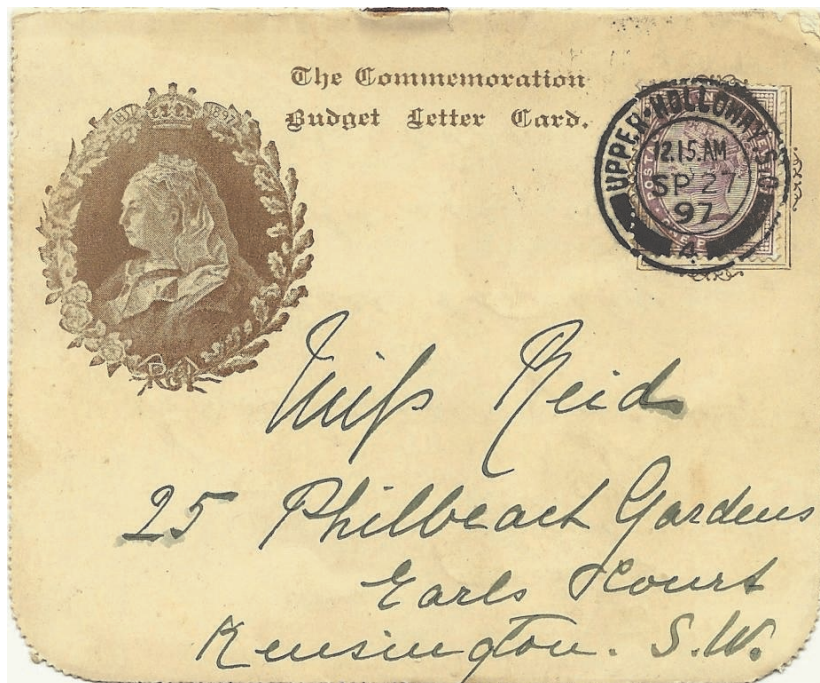 The Commemoration
Budget Letter Card.
1897
UPPER·HOLLOWAY S.O.
12.15.AM
SP 27
97
4
POSTAGE
Miss Reid
25 Philbeach Gardens
Earls Court
Kensington. S.W.